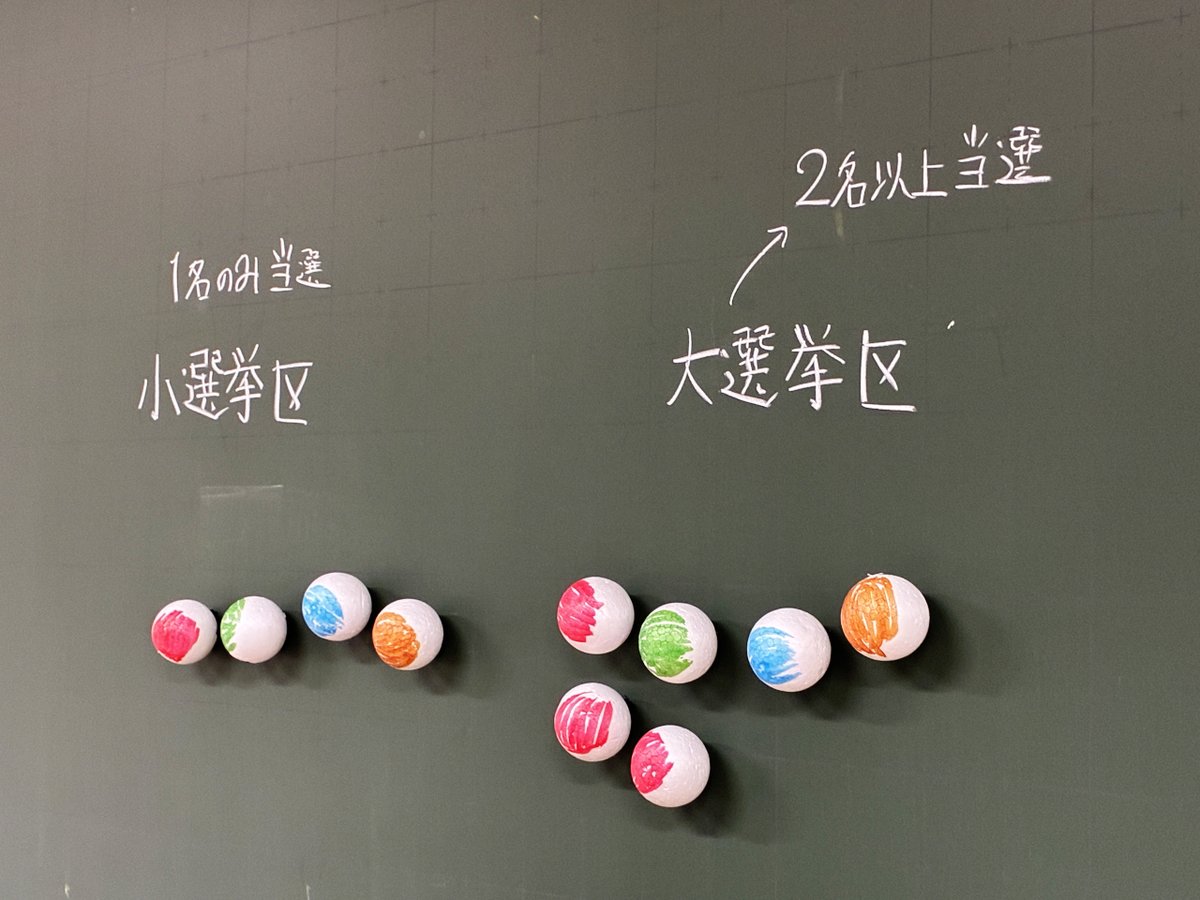 1名のみ当選
小選挙区
2名以上当選
大選挙区